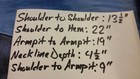 Shoulder to Shoulder: 13½"
Shoulder to Hem: 22"
Armpit to Armpit: 19"
Neckline Depth: 4½"
Shoulder to Armpit: 9"